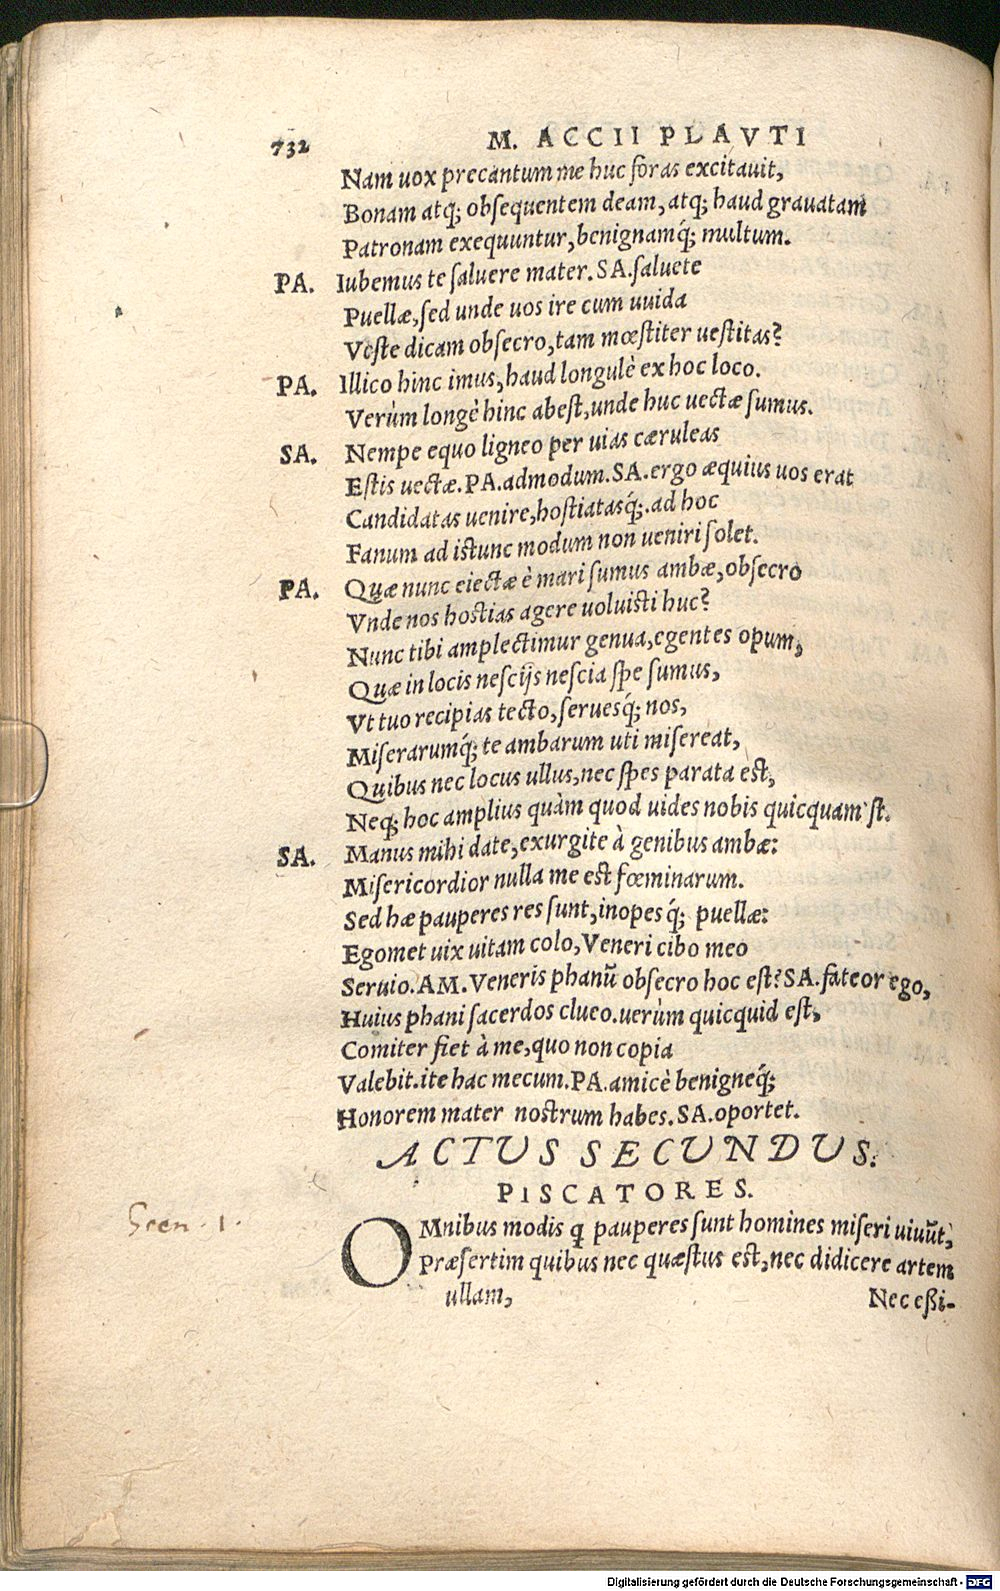 732 M. ACCII PLAVTI
Nam uox precantum me huc foras excitauit,
Bonam atq; obſequentem deam, atq; haud grauatam
Patronam exequuntur, benignamq́; multum.
PA. Iubemus te ſaluere mater. SA. ſaluete
Puellæ, ſed unde uos ire cum uuida
Veſte dicam obſecro, tam mœſtiter ueſtitas?
PA. Illico hinc imus, haud longulè ex hoc loco.
Verùm longè hinc abeſt, unde huc uectæ ſumus.
SA. Nempe equo ligneo per uias cæruleas
Eſtis uectæ. PA. admodum. SA. ergo æquius uos erat
Candidatas uenire, hoſtiatasq́;. ad hoc
Fanum ad iſtunc modum non ueniri ſolet.
PA. Quæ nunc eiectæ è mari ſumus ambæ, obſecro
Vnde nos hoſtias agere uoluiſti huc?
Nunc tibi amplectimur genua, egentes opum,
Quæ in locis neſcijs neſcia ſpe ſumus,
Vt tuo recipias tecto, ſeruesq́; nos,
Miſerarumq́; te ambarum uti miſereat,
Quibus nec locus ullus, nec ſpes parata eſt,
Neq; hoc amplius quàm quod uides nobis quicquam 'ſt.
SA. Manus mihi date, exurgite à genibus ambæ:
Miſericordior nulla me eſt fœminarum.
Sed hæ pauperes res ſunt, inopes q́; puellæ:
Egomet uix uitam colo, Veneri cibo meo
Seruio. AM. Veneris phanū obſecro hoc eſt? SA. fateor ego,
Huius phani ſacerdos clueo. uerùm quicquid eſt,
Comiter fiet à me, quo non copia
Valebit. ite hac mecum. PA. amicè benigneq́;
Honorem mater noſtrum habes. SA. oportet.
ACTUS SECUNDUS.
PISCATORES.
Scen. 1.
OMnibus modis q̄ pauperes ſunt homines miſeri uiuūt,
Præſertim quibus nec quæſtus eſt, nec didicere artem
ullam, Neceßi-
Digitalisierung gefördert durch die Deutsche Forschungsgemeinschaft - DFG